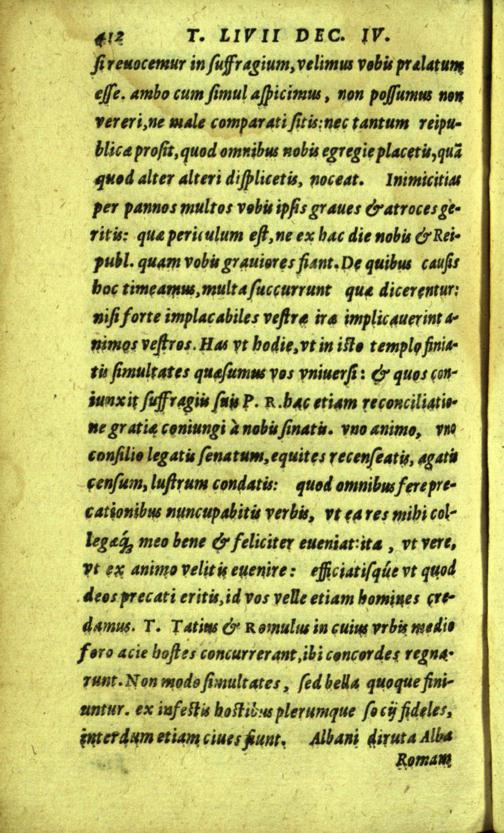 412 T. LIVII DEC. IV.
si reuocemur in suffragium, velimus vobis prælatum
esse. ambo cum simul aspicimus, non possumus non
vereri, ne male comparati sitis: nec tantum reipu-
blicæ prosit, quod omnibus nobis egregie placetis, quã
quod alter alteri displicetis, noceat. Inimicitias
per pannos multos vobis ipsis graues & atroces ge-
ritis: quæ periculum est, ne ex hac die nobis & Rei-
publ. quam vobis grauiores fiant. De quibus causis
hoc timeamus, multa succurrunt quæ dicerentur:
nisi forte implacabiles vestræ iræ implicauerint a-
nimos vestros. Has vt hodie, vt in isto templo finia-
tis simultates quæsumus vos vniuersi: & quos con-
iunxit suffragiis suis P. R. hac etiam reconciliatio-
ne gratiæ coniungi à nobis sinatis. vno animo, vno
consilio legatis senatum, equites recenseatis, agatis
censum, lustrum condatis: quod omnibus fere pre-
cationibus nuncupabitis verbis, vt ea res mihi col-
legæq́; meo bene & feliciter eueniat: ita, vt vere,
vt ex animo velitis euenire: efficiatisq́ue vt quod
deos precati eritis, id vos velle etiam homines cre-
damus. T. Tatius & Romulus in cuius vrbis medio
foro acie hostes concurrerant, ibi concordes regna-
runt. Non modo simultates, sed bella quoque fini-
untur. ex infestis hostibus plerumque socij fideles,
interdum etiam ciues fiunt. Albani diruta Alba
Romam